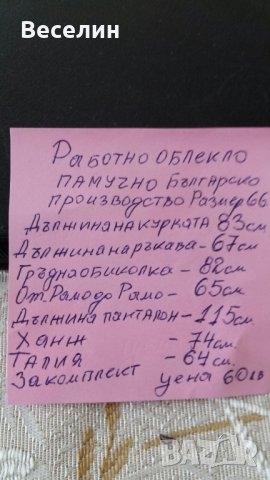 Веселин
Работно облекло
памучно Българско
производство Размер 66.
Дължина на курката 83см
Дължина на ръкава - 67см
Гръдна обиколка - 82см
От Рамо до Рямо - 65см
Дължина панталон - 115см.
Ханж - 74см.
Талия - 64см.
За комплект цена 60лв
BAZAR